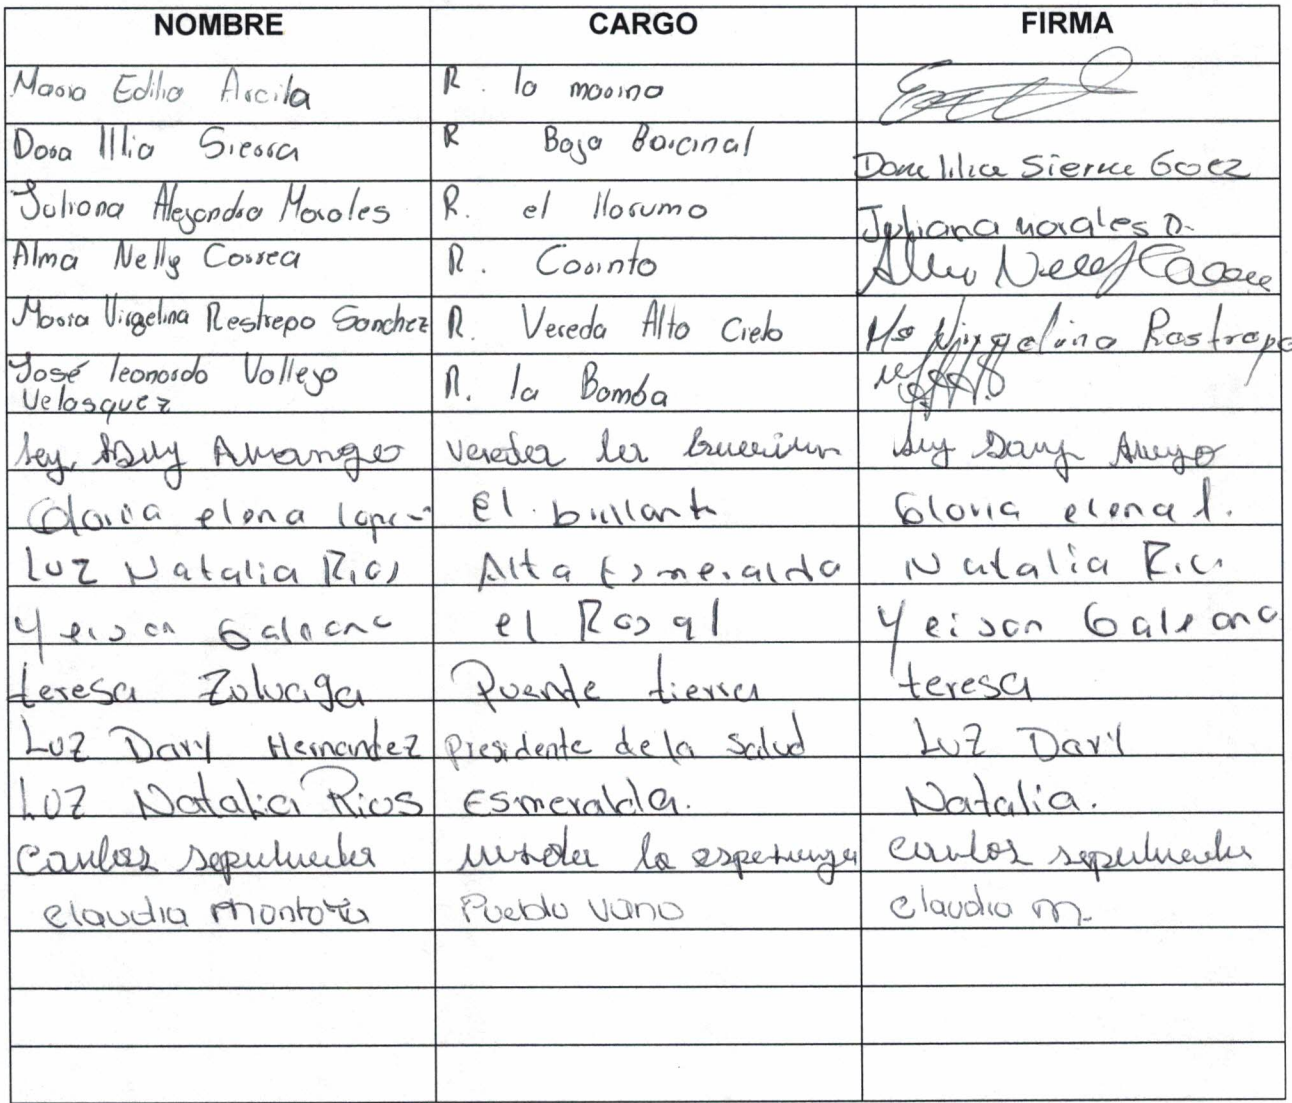 NOMBRE CARGO FIRMA
Maria Edilia Arcila R. la marina
Dora Illia Sierra R Baja Barcinal Dora lilia Sierra Goez
Juliana Alejandra Morales R. el llarumo Juliana morales O.
Alma Nelly Correa R. Corinto Alma Nelly Correa
Maria Virgelina Restrepo Sanchez R. Vereda Alto Cielo Ma Virgelina Restrepo
José leonardo Vallejo R. la Bomba
Velasquez
Arango vereda la
Gloria elena lopez El brillante Gloria elena l.
Luz Natalia Rios Alta Esmeralda Natalia Rios
Yeison Galeano el Rosal Yeison Galeano
teresa Zuluaga Puente tierra teresa
Luz Dary Hernandez presidente de la Salud Luz Dary
Luz Natalia Rios Esmeralda. Natalia.
Carlos sepulveda vereda la esperanza carlos sepulveda
claudia montoya Pueblo vano claudia m.